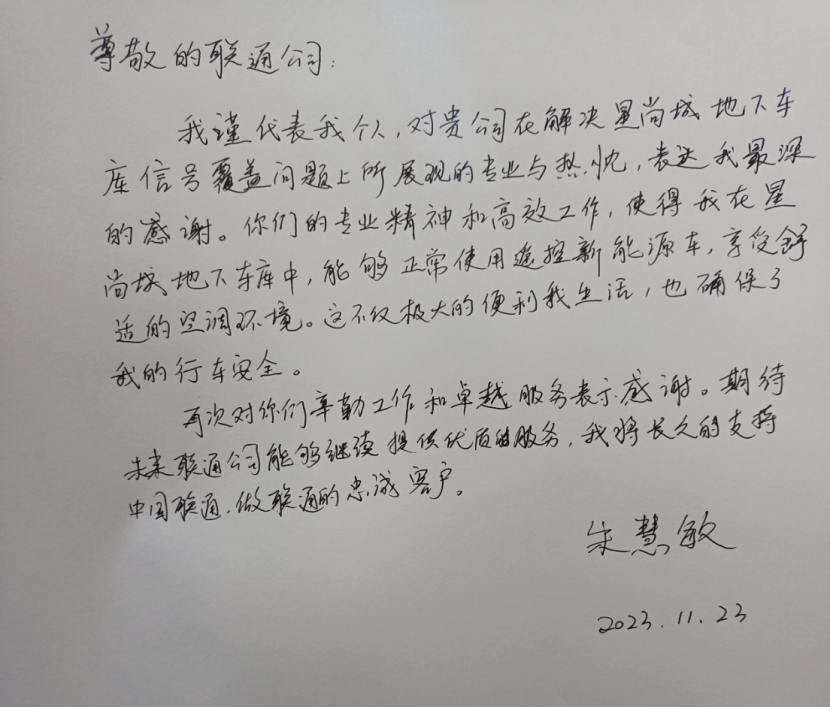 尊敬的联通公司：
我谨代表我个人，对贵公司在解决星尚城地下车
库信号覆盖问题上所展现的专业与热忱，表达我最深
的感谢。你们的专业精神和高效工作，使得我在星
尚城地下车库中，能够正常使用遥控新能源车，享受舒
适的空调环境。这不仅极大的便利我生活，也确保了
我的行车安全。
再次对你们辛勤工作和卓越服务表示感谢。期待
未来联通公司能够继续提供优质的服务，我将长久的支持
中国联通，做联通的忠诚客户。
朱慧敏
2023.11.23